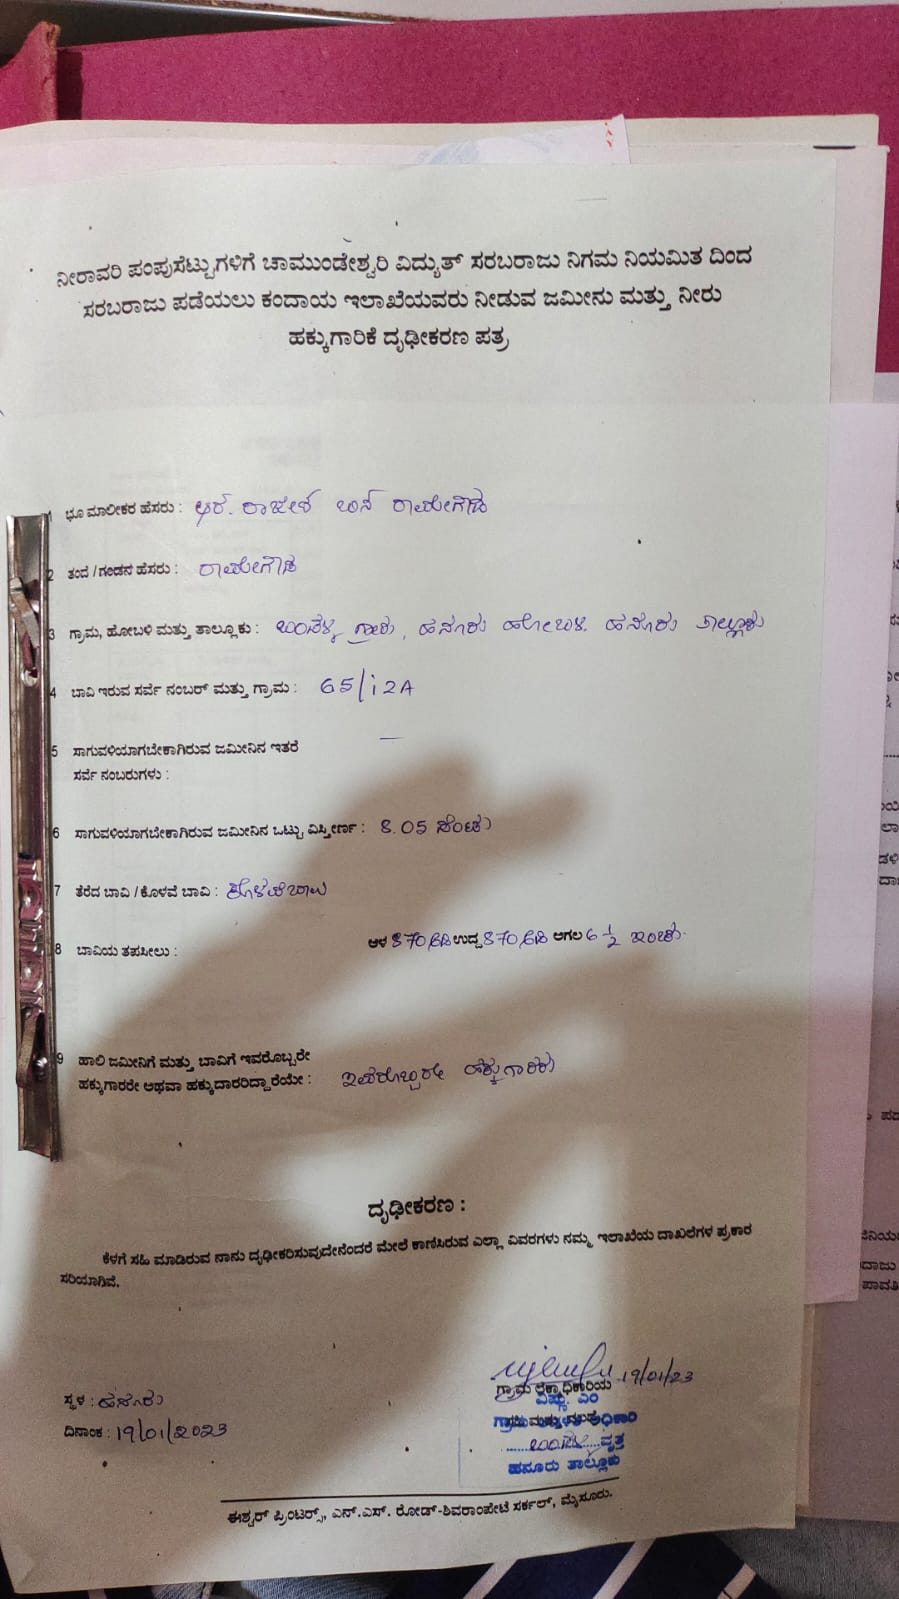 ನೀರಾವರಿ ಪಂಪುಸೆಟ್ಟುಗಳಿಗೆ ಚಾಮುಂಡೇಶ್ವರಿ ವಿದ್ಯುತ್ ಸರಬರಾಜು ನಿಗಮ ನಿಯಮಿತ ದಿಂದ
ಸರಬರಾಜು ಪಡೆಯಲು ಕಂದಾಯ ಇಲಾಖೆಯವರು ನೀಡುವ ಜಮೀನು ಮತ್ತು ನೀರು
ಹಕ್ಕುಗಾರಿಕೆ ದೃಢೀಕರಣ ಪತ್ರ
1 ಭೂ ಮಾಲೀಕರ ಹೆಸರು : ಆರ್. ರಾಜೇಶ ಬಿನ್ ರಾಮೇಗೌಡ
2 ತಂದೆ / ಗಂಡನ ಹೆಸರು : ರಾಮೇಗೌಡ
3 ಗ್ರಾಮ, ಹೋಬಳಿ ಮತ್ತು ತಾಲ್ಲೂಕು : ಗ್ರಾಮ, ಹನೂರು ಹೋಬಳಿ. ಹನೂರು ತಾಲ್ಲೂಕು
4 ಬಾವಿ ಇರುವ ಸರ್ವೆ ನಂಬರ್ ಮತ್ತು ಗ್ರಾಮ : 65/12A
5 ಸಾಗುವಳಿಯಾಗಬೇಕಾಗಿರುವ ಜಮೀನಿನ ಇತರೆ —
ಸರ್ವೆ ನಂಬರುಗಳು :
6 ಸಾಗುವಳಿಯಾಗಬೇಕಾಗಿರುವ ಜಮೀನಿನ ಒಟ್ಟು ವಿಸ್ತೀರ್ಣ : 8.05 ಸೆಂಟು
7 ತೆರೆದ ಬಾವಿ / ಕೊಳವೆ ಬಾವಿ : ಕೊಳವೆಬಾವಿ
8 ಬಾವಿಯ ತಪಸೀಲು : ಆಳ 870 ಅಡಿ ಉದ್ದ 870 ಅಡಿ ಅಗಲ 6 1/2 ಇಂಚು.
9 ಹಾಲಿ ಜಮೀನಿಗೆ ಮತ್ತು ಬಾವಿಗೆ ಇವರೊಬ್ಬರೇ
ಹಕ್ಕುಗಾರರೇ ಅಥವಾ ಹಕ್ಕುದಾರರಿದ್ದಾರೆಯೇ : ಇವರೊಬ್ಬರೇ ಹಕ್ಕುಗಾರರು
ದೃಢೀಕರಣ :
ಕೆಳಗೆ ಸಹಿ ಮಾಡಿರುವ ನಾನು ದೃಢೀಕರಿಸುವುದೇನೆಂದರೆ ಮೇಲೆ ಕಾಣಿಸಿರುವ ಎಲ್ಲಾ ವಿವರಗಳು ನಮ್ಮ ಇಲಾಖೆಯ ದಾಖಲೆಗಳ ಪ್ರಕಾರ
ಸರಿಯಾಗಿವೆ.
19/01/23
ಸ್ಥಳ : ಹನೂರು
ಗ್ರಾಮ ಲೆಕ್ಕಾಧಿಕಾರಿಯ
ದಿನಾಂಕ : 19/01/2023
ವೃತ್ತ
ಹನೂರು ತಾಲ್ಲೂಕು
ಈಶ್ವರ್ ಪ್ರಿಂಟರ್ಸ್, ಎನ್.ಎಸ್. ರೋಡ್-ಶಿವರಾಂಪೇಟೆ ಸರ್ಕಲ್, ಮೈಸೂರು.